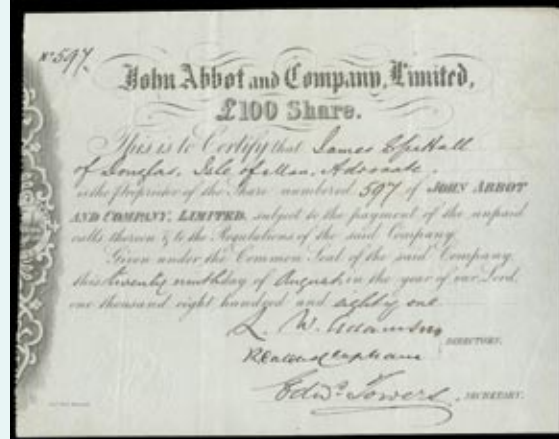 No. 597.
John Abbot and Company, Limited,
£100 Share.
This is to Certify that James
of Douglas, Isle of Man, Advocate.
is the Proprietor of the Share numbered 597 of JOHN ABBOT
AND COMPANY, LIMITED, subject to the payment of the unpaid
calls thereon & to the Regulations of the said Company.
Given under the Common Seal of the said Company,
this twenty ninth day of August in the year of our Lord
one thousand eight hundred and eighty one
L. W. Adamson
DIRECTORS.
Edwd. Towers, SECRETARY.